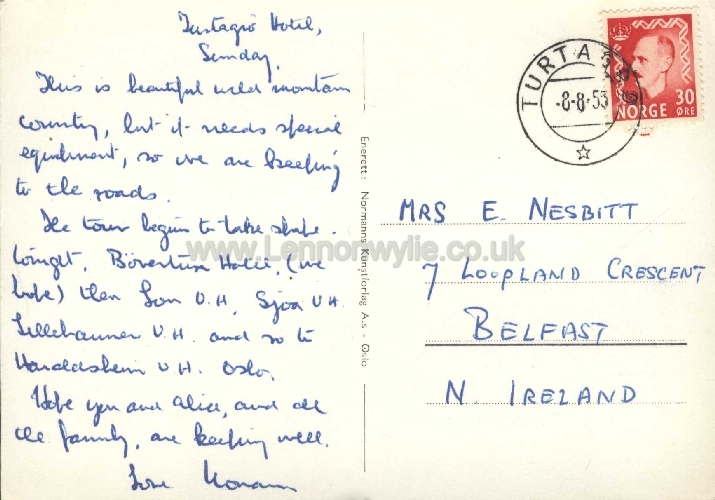 Turtagrö Hotel,
Sunday.
This is beautiful wild mountain
country, but it needs special
equipment, so we are keeping
to the roads.
The tour begins to take shape.
Tonight, Bövertun Hotel, (we
hope) then Lom U.H, Sjoa U.H.
Lillehammer U.H. and so to
Haraldsheim U.H. Oslo.
Hope you and Alice, and all
the family, are keeping well.
Love
Enerett: Normanns Kunstforlag A.s - Oslo
TURTAGRØ
-8-8-53
NORGE 30
ØRE
MRS E. NESBITT
7 LOOPLAND CRESCENT
BELFAST
N. IRELAND
www.Lennonwylie.co.uk